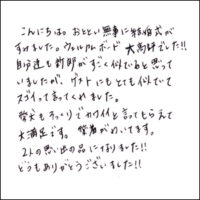 こんにちは。おととい無事に結婚式が
すみました。ウェルカムボード 大好評でした!!
自分達も新郎がすごく似てると思って
いましたが、ゲストにもとても似ていて
スゴイって言ってくれました。
愛犬もそっくりでカワイイと言ってもらえて
大満足です。愛着がわいてます。
2人の思い出の品になりました!!
どうもありがとうございました!!